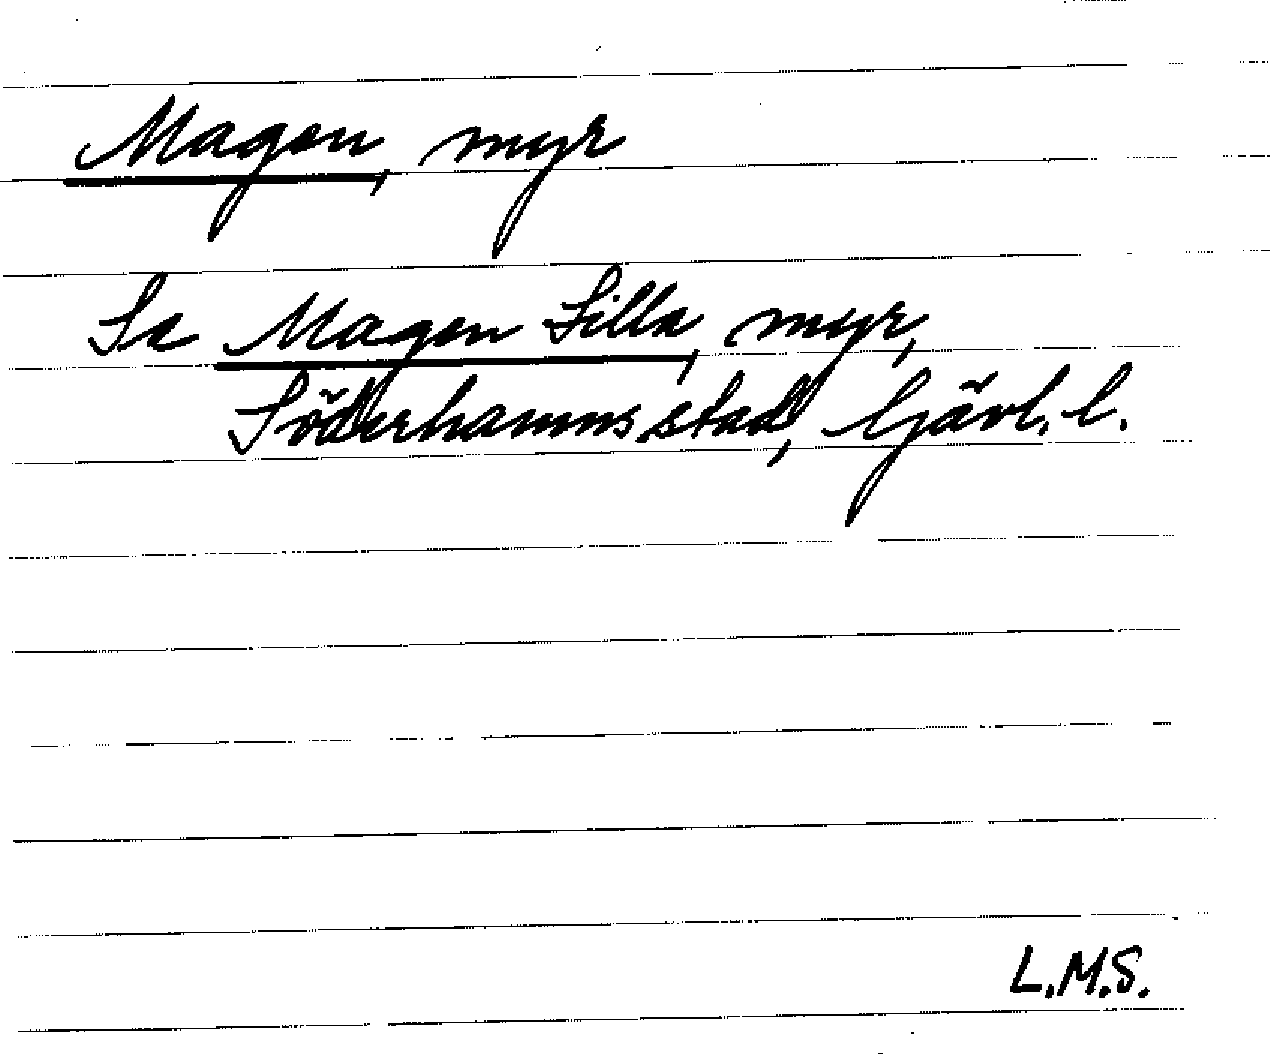 Magen, myr
Se Magen Lilla, myr,
Söderhamns stad, Gävl. l.
L.M.S.